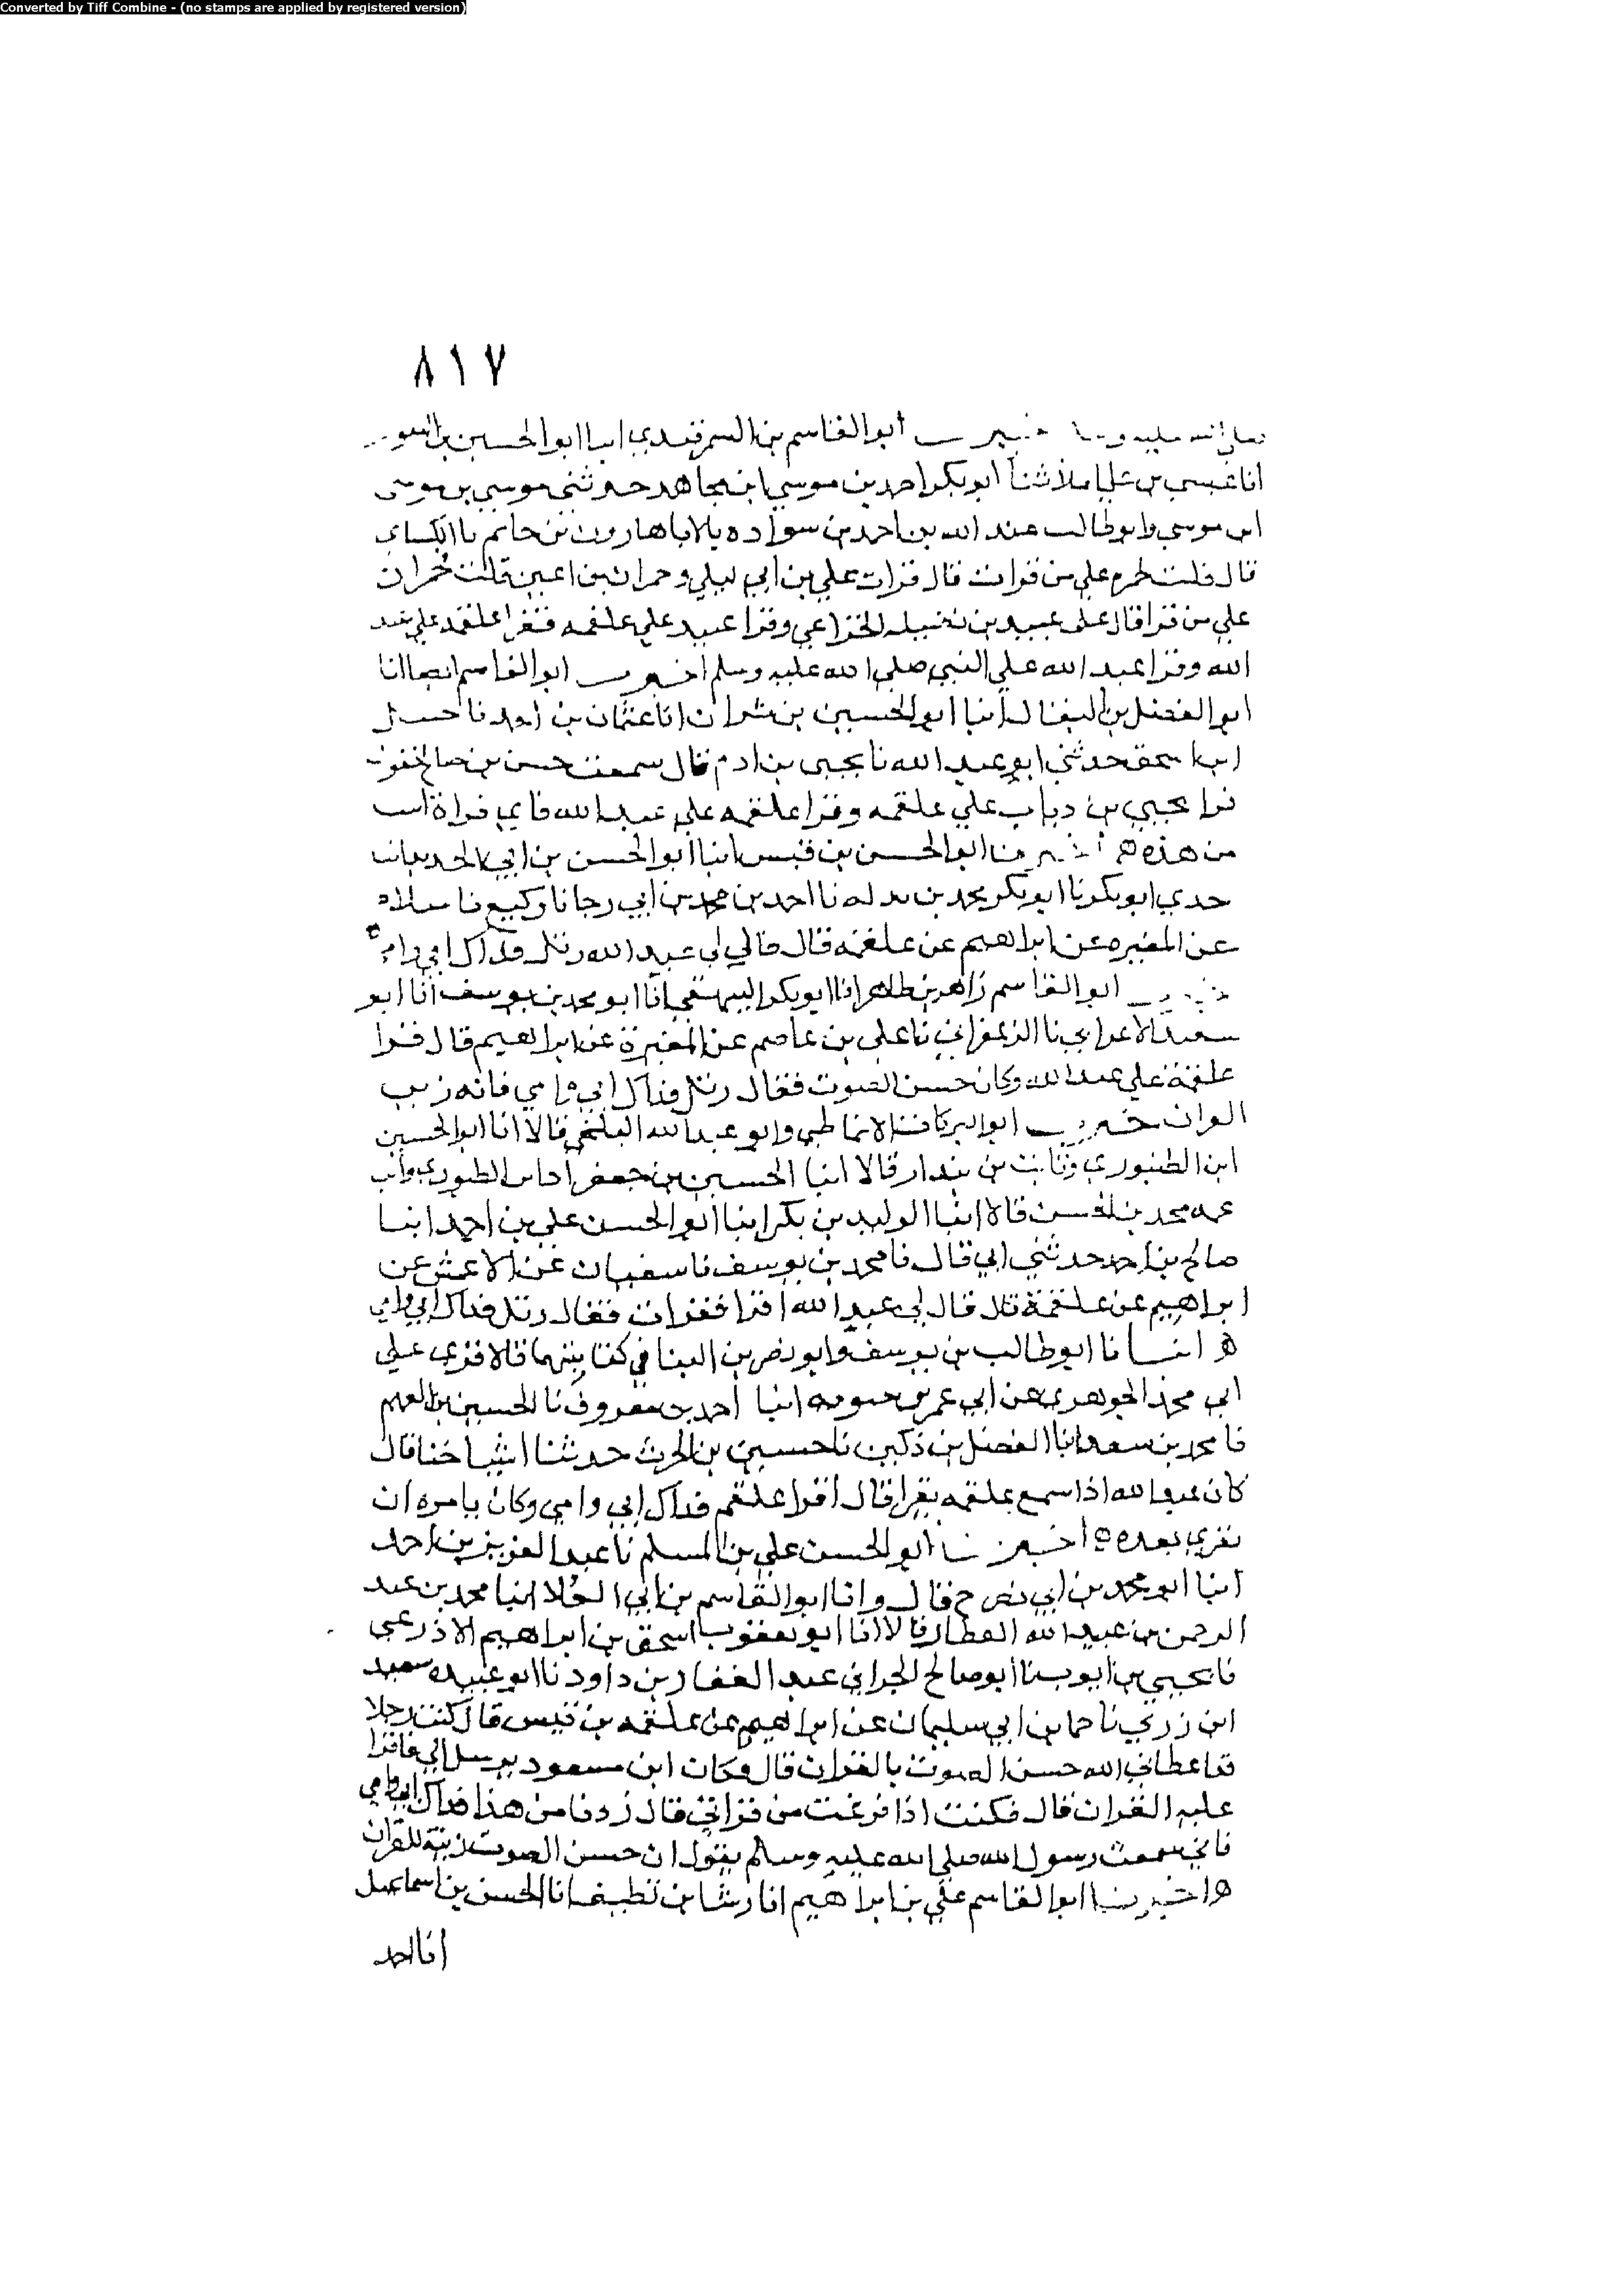 Converted by Tiff Combine - (no stamps are applied by registered version)
٨١٧
ابو القاسم بن السمرقندي انبا ابو الحسين بن النقور
انا عيسى بن علي املا ثنا ابو بكر احمد بن موسى ابن مجاهد حدثني موسى بن موسى
ابن موسى وابو طالب عبد الله بن احمد بن سواده قالا نا هارون بن حاتم نا الكسائي
قال قلت لحمزه على من قرات قال قرات على بن ابي ليلى وحمران بن اعين قلت حمران
على من قرا قال على عبيد بن نضيله الخزاعي وقرا عبيد على علقمه فقرا علقمه على عبد
الله وقرا عبد الله على النبي صلى الله عليه وسلم ابو القاسم ايضا انا
ابو الفضل بن البقال انبا ابو الحسين بن بشران انا عثمان بن احمد نا حنبل
ابن اسحق حدثني ابو عبد الله نا يحيى بن ادم قال سمعت حسن بن صالح يقول
قرا يحيى بن وثاب على علقمه وقرا علقمه على عبد الله فاي قراة اثبت
من هذه ه ابو الحسن بن قبيس انبا ابو الحسن بن ابي الحديد انبا
جدي ابو بكر نا ابو بكر محمد بن نا احمد بن محمد بن ابي رجا نا وكيع نا
عن المغيره عن ابراهيم عن علقمه قال قال لي عبد الله رتل فداك ابي وامي ه
ابو القاسم زاهر بن طاهر انا ابو بكر البيهقي انا ابو محمد بن يوسف انا ابو
سعيد الاعرابي نا الزعفراني نا علي بن عاصم عن المغيرة عن ابراهيم قال قرا
علقمة على عبد الله وكان حسن الصوت فقال رتل فداك ابي وامي فانه زين
القران ابو البركات الانماطي وابو عبد الله البلخي قالا انا ابو الحسين
ابن الطيوري وثابت بن بندار قالا انبا الحسين بن جعفر زاد ابن الطيوري وابن
عمه محمد بن الحسن قالا انبا الوليد بن بكر انبا ابو الحسن علي بن احمد انبا
صالح بن احمد حدثني ابي قال نا محمد بن يوسف نا سفيان عن الاعمش عن
ابراهيم عن علقمة قال قال لي عبد الله اقرا فقرات فقال رتل فداك ابي وامي
ه انبانا ابو طالب بن يوسف وابو نصر بن البنا في كتابيهما قالا قري على
ابي محمد الجوهري عن ابي عمر بن حيويه انبا احمد بن معروف نا الحسين بن الفهم
نا محمد بن سعد انبا الفضل بن دكين نا حسين بن الحرث حدثنا اشياخنا قال
كان عبد الله اذا سمع علقمه يقرا قال اقرا علقم فداك ابي وامي وكان يامره ان
يقري بعده ه اخبرنا ابو الحسن علي بن المسلم نا عبد العزيز بن احمد
انبا ابو محمد بن ابي نصر ح قال وانا ابو القاسم بن ابي العلا انبا محمد بن عبد
الرحمن بن عبيد الله القطان قالا انا ابو يعقوب اسحق بن ابراهيم الاذرعي
نا يحيى بن ايوب نا ابو صالح الحراني عبد الغفار بن داود نا ابو عبيده سعيد
ابن زربي نا حماد بن ابي سليمان عن ابراهيم عن علقمه بن قيس قال كنت رجلا
قد اعطاني الله حسن الصوت بالقران قال فكان ابن مسعود يرسل الي فاقرا
عليه القران قال فكنت اذا فرغت من قراتي قال زدنا من هذا فداك ابي وامي
فاني سمعت رسول الله صلى الله عليه وسلم يقول ان حسن الصوت زينة للقران
ه اخبرنا ابو القاسم علي بن ابراهيم انا رشا بن نظيف انا الحسن بن اسماعيل
انا احمد